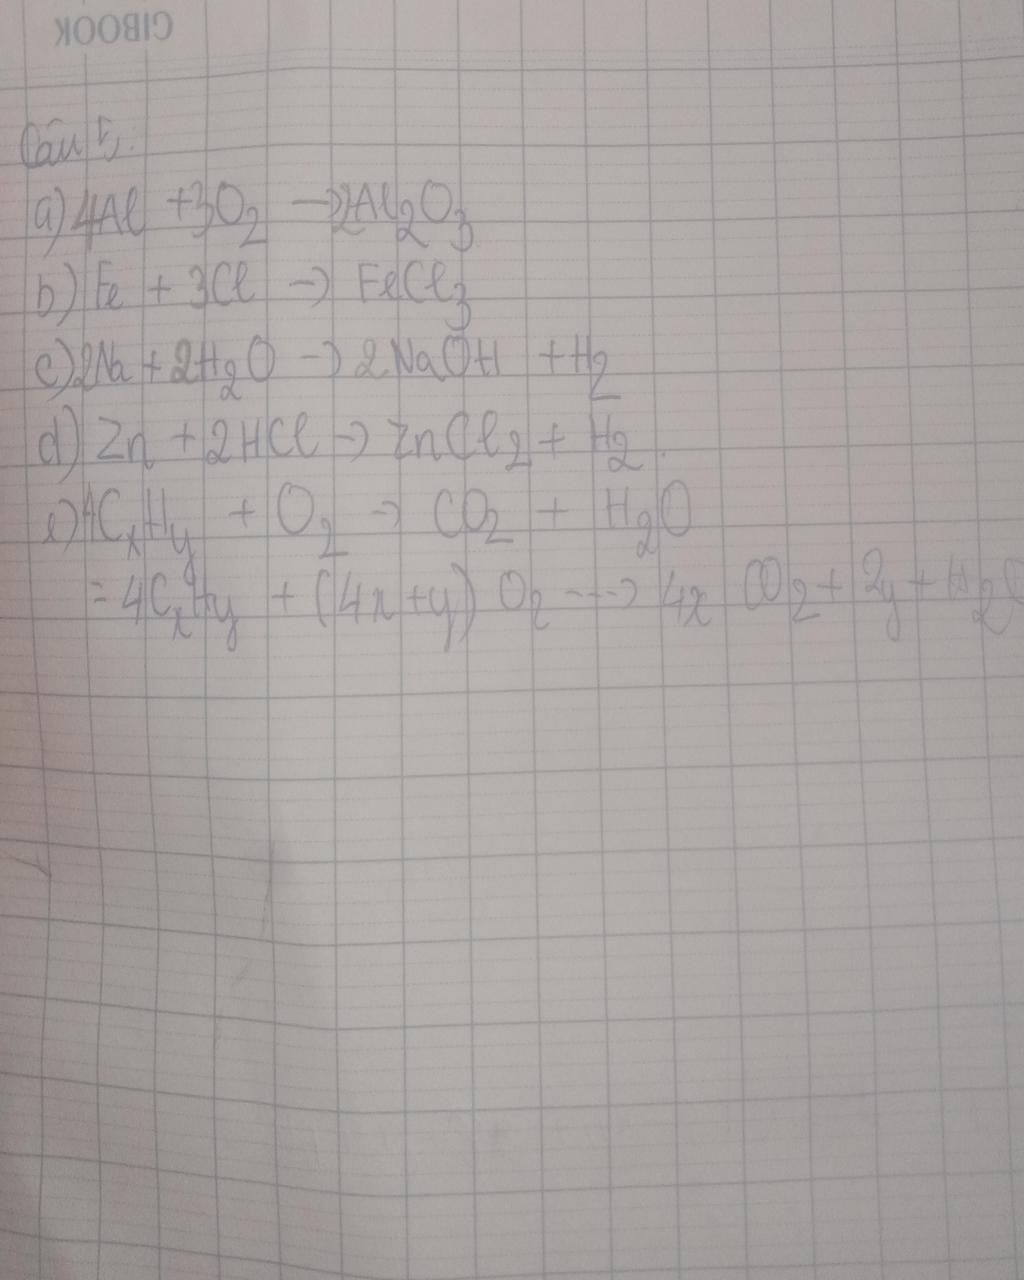 GIBOOK
Câu 5:
a) 4Al + 3O₂ → 2Al₂O₃
b) Fe + 3Cl → FeCl₃
c) 2Na + 2H₂O → 2NaOH + H₂
d) Zn + 2HCl → ZnCl₂ + H₂.
e) 4CₓHy + O₂ → CO₂ + H₂O
= 4CₓHy + (4x+y) O₂ ---> 4x CO₂ + 2y + H₂O